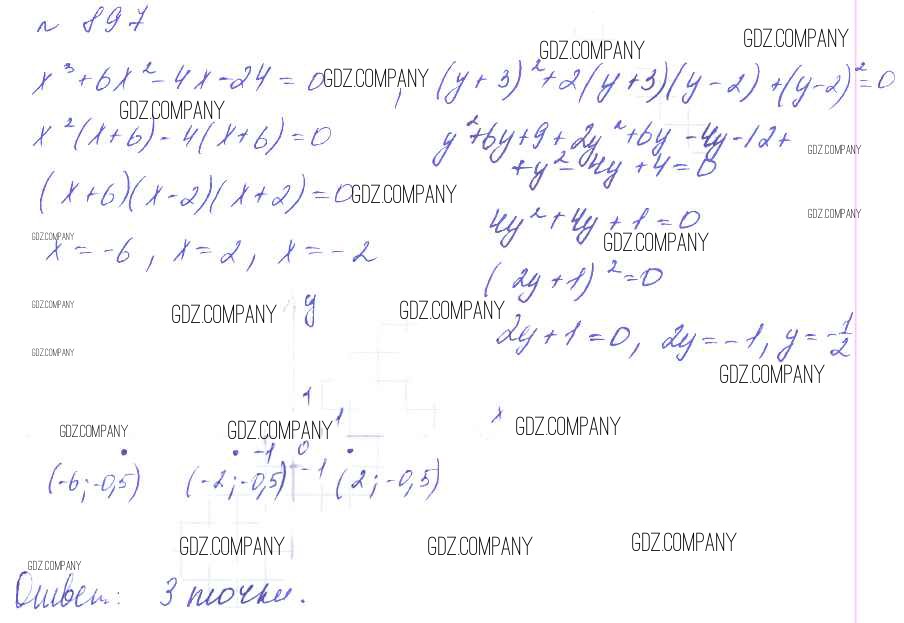 № 897
x³ + 6x² - 4x - 24 = 0 GDZ.COMPANY , (y + 3)² + 2(y + 3)(y - 2) + (y - 2)² = 0
GDZ.COMPANY GDZ.COMPANY
GDZ.COMPANY
x²(x + 6) - 4(x + 6) = 0 y² + 6y + 9 + 2y² + 6y - 4y - 12 +
GDZ.COMPANY
+ y² - 4y + 4 = 0
(x + 6)(x - 2)(x + 2) = 0 GDZ.COMPANY
4y² + 4y + 1 = 0 GDZ.COMPANY
GDZ.COMPANY GDZ.COMPANY
x = -6, x = 2, x = -2
(2y + 1)² = 0
GDZ.COMPANY GDZ.COMPANY y GDZ.COMPANY
2y + 1 = 0, 2y = -1, y = -1/2
GDZ.COMPANY GDZ.COMPANY
1
GDZ.COMPANY GDZ.COMPANY 1 x GDZ.COMPANY
-1 0
-1
(-6; -0,5) (-2; -0,5) (2; -0,5)
GDZ.COMPANY GDZ.COMPANY GDZ.COMPANY
GDZ.COMPANY
Ответ: 3 точки.